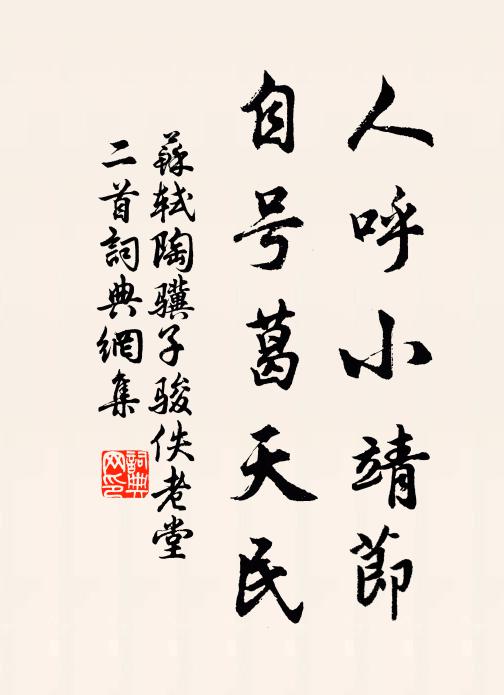 人呼小靖節
自号葛天民
蘇軾陶骥子骏佚老堂
二首詞典網集
詞典网印